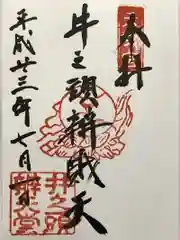 奉拝
井之頭辨財天
平成廿三年七月
井之頭
辨天堂